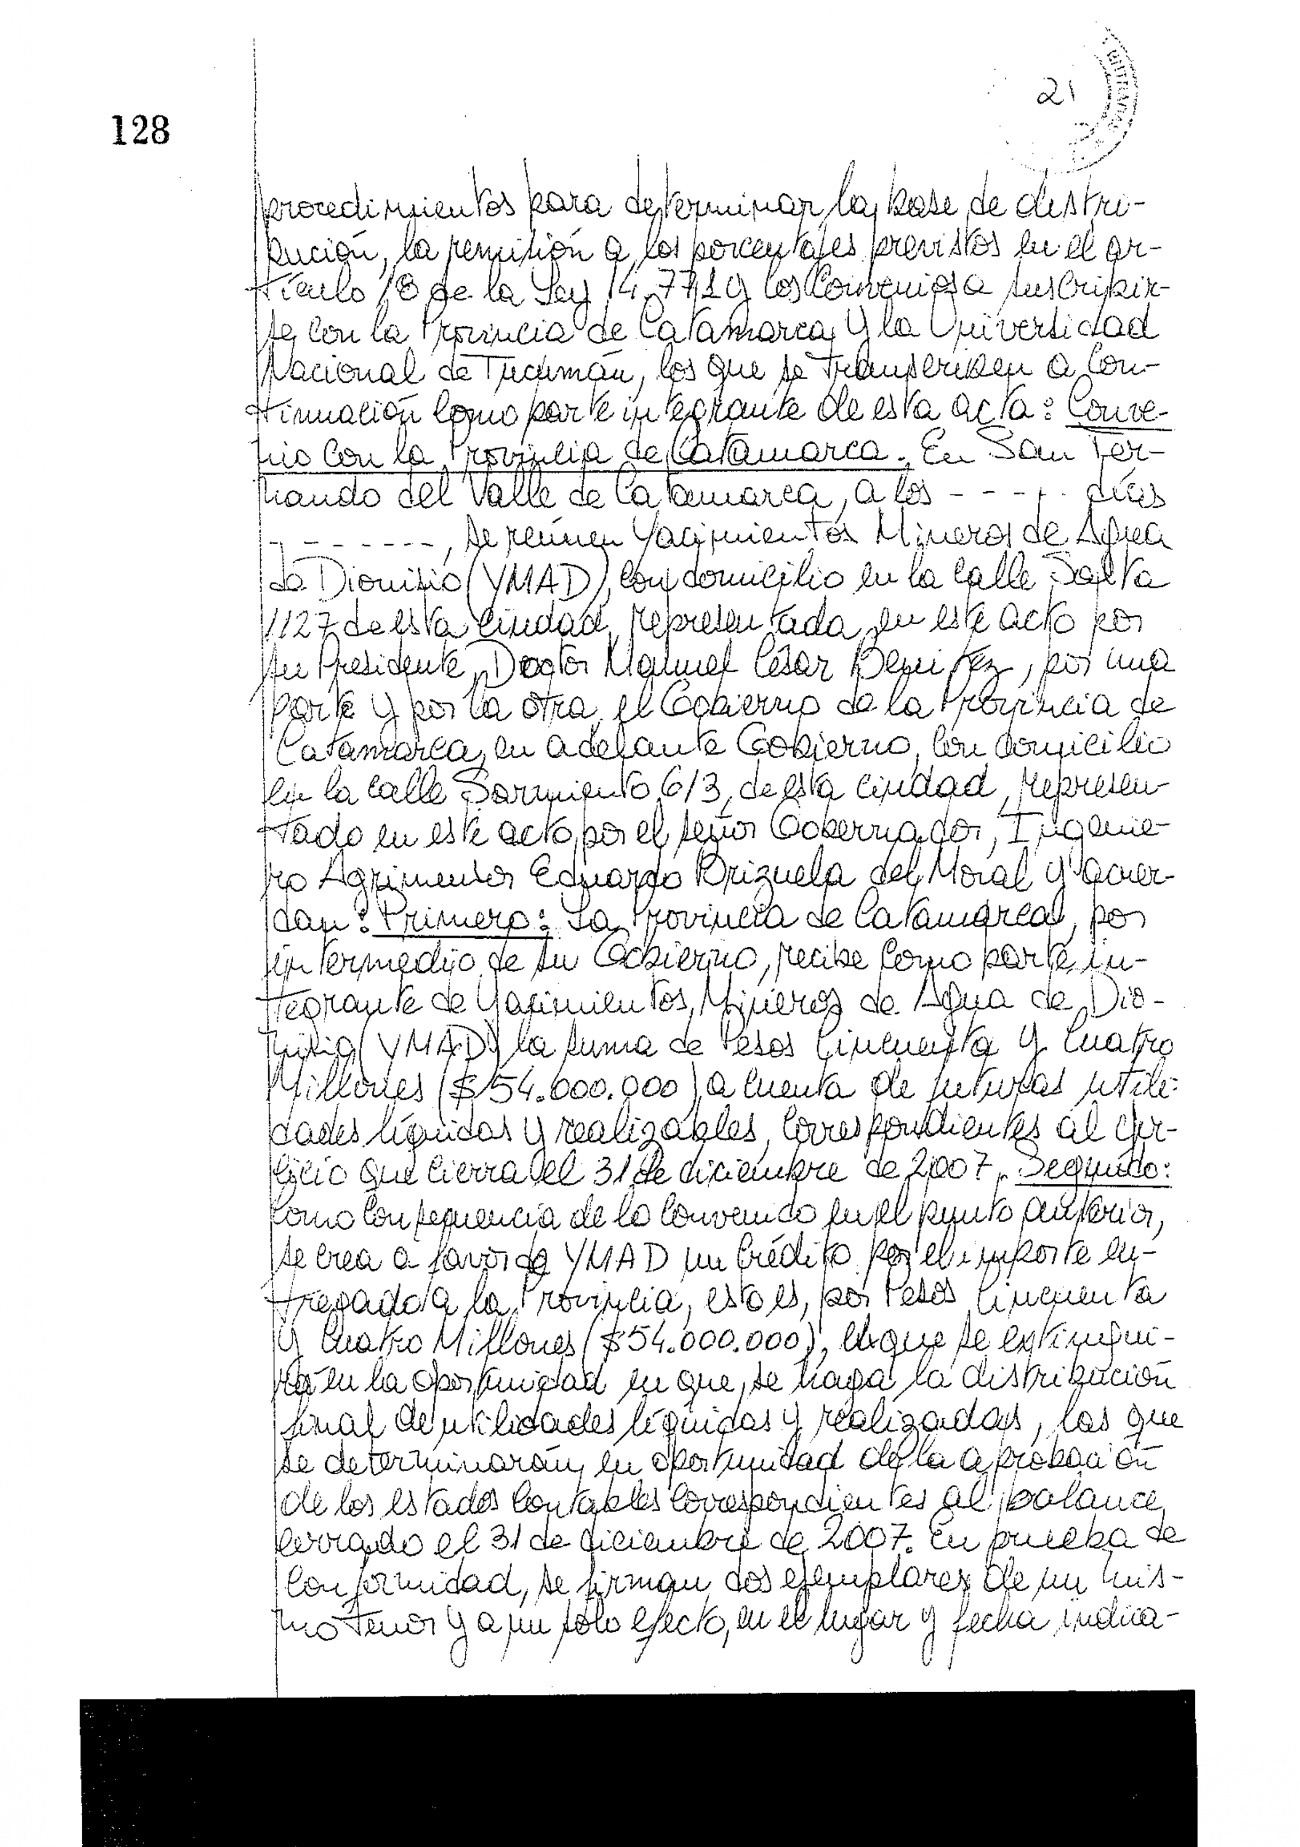 21
128
procedimientos para determinar la base de distri-
bución, la remisión a los porcentajes previstos en el ar-
tículo 18 de la Ley 14.771 y los Convenios a suscribir-
se con la Provincia de Catamarca y la Universidad
Nacional de Tucumán, los que se transcriben a con-
tinuación como parte integrante de esta acta: Conve-
nio con la Provincia de Catamarca. En San Fer-
nando del Valle de Catamarca, a los - - - - - días
- - - - - - - -, se reúnen Yacimientos Mineros de Agua
de Dionisio (YMAD), con domicilio en la calle Salta
1127 de esta ciudad, representada en este acto por
su Presidente, Doctor Manuel César Benítez, por una
parte y por la otra, el Gobierno de la Provincia de
Catamarca, en adelante Gobierno, con domicilio
en la calle Sarmiento 613, de esta ciudad, represen-
tado en este acto por el señor Gobernador, Ingenie-
ro Agrimensor Eduardo Brizuela del Moral y acuer-
dan: Primero: La Provincia de Catamarca, por
intermedio de su Gobierno, recibe como parte in-
tegrante de Yacimientos Mineros de Agua de Dio-
nisio (YMAD) la suma de Pesos Cincuenta y Cuatro
Millones ($54.000.000) a cuenta de futuras utili-
dades líquidas y realizables, correspondientes al ejer-
cicio que cierra el 31 de diciembre de 2007. Segundo:
Como consecuencia de lo convenido en el punto anterior,
se crea a favor de YMAD un crédito por el importe en-
tregado a la Provincia, esto es, por Pesos Cincuenta
y Cuatro Millones ($54.000.000), el que se extingui-
rá en la oportunidad en que se haga la distribución
final de utilidades líquidas y realizadas, las que
se determinarán en oportunidad de la aprobación
de los estados contables correspondientes al balance
cerrado el 31 de diciembre de 2007. En prueba de
conformidad, se firman dos ejemplares de un mis-
mo tenor y a un sólo efecto, en el lugar y fecha indica-